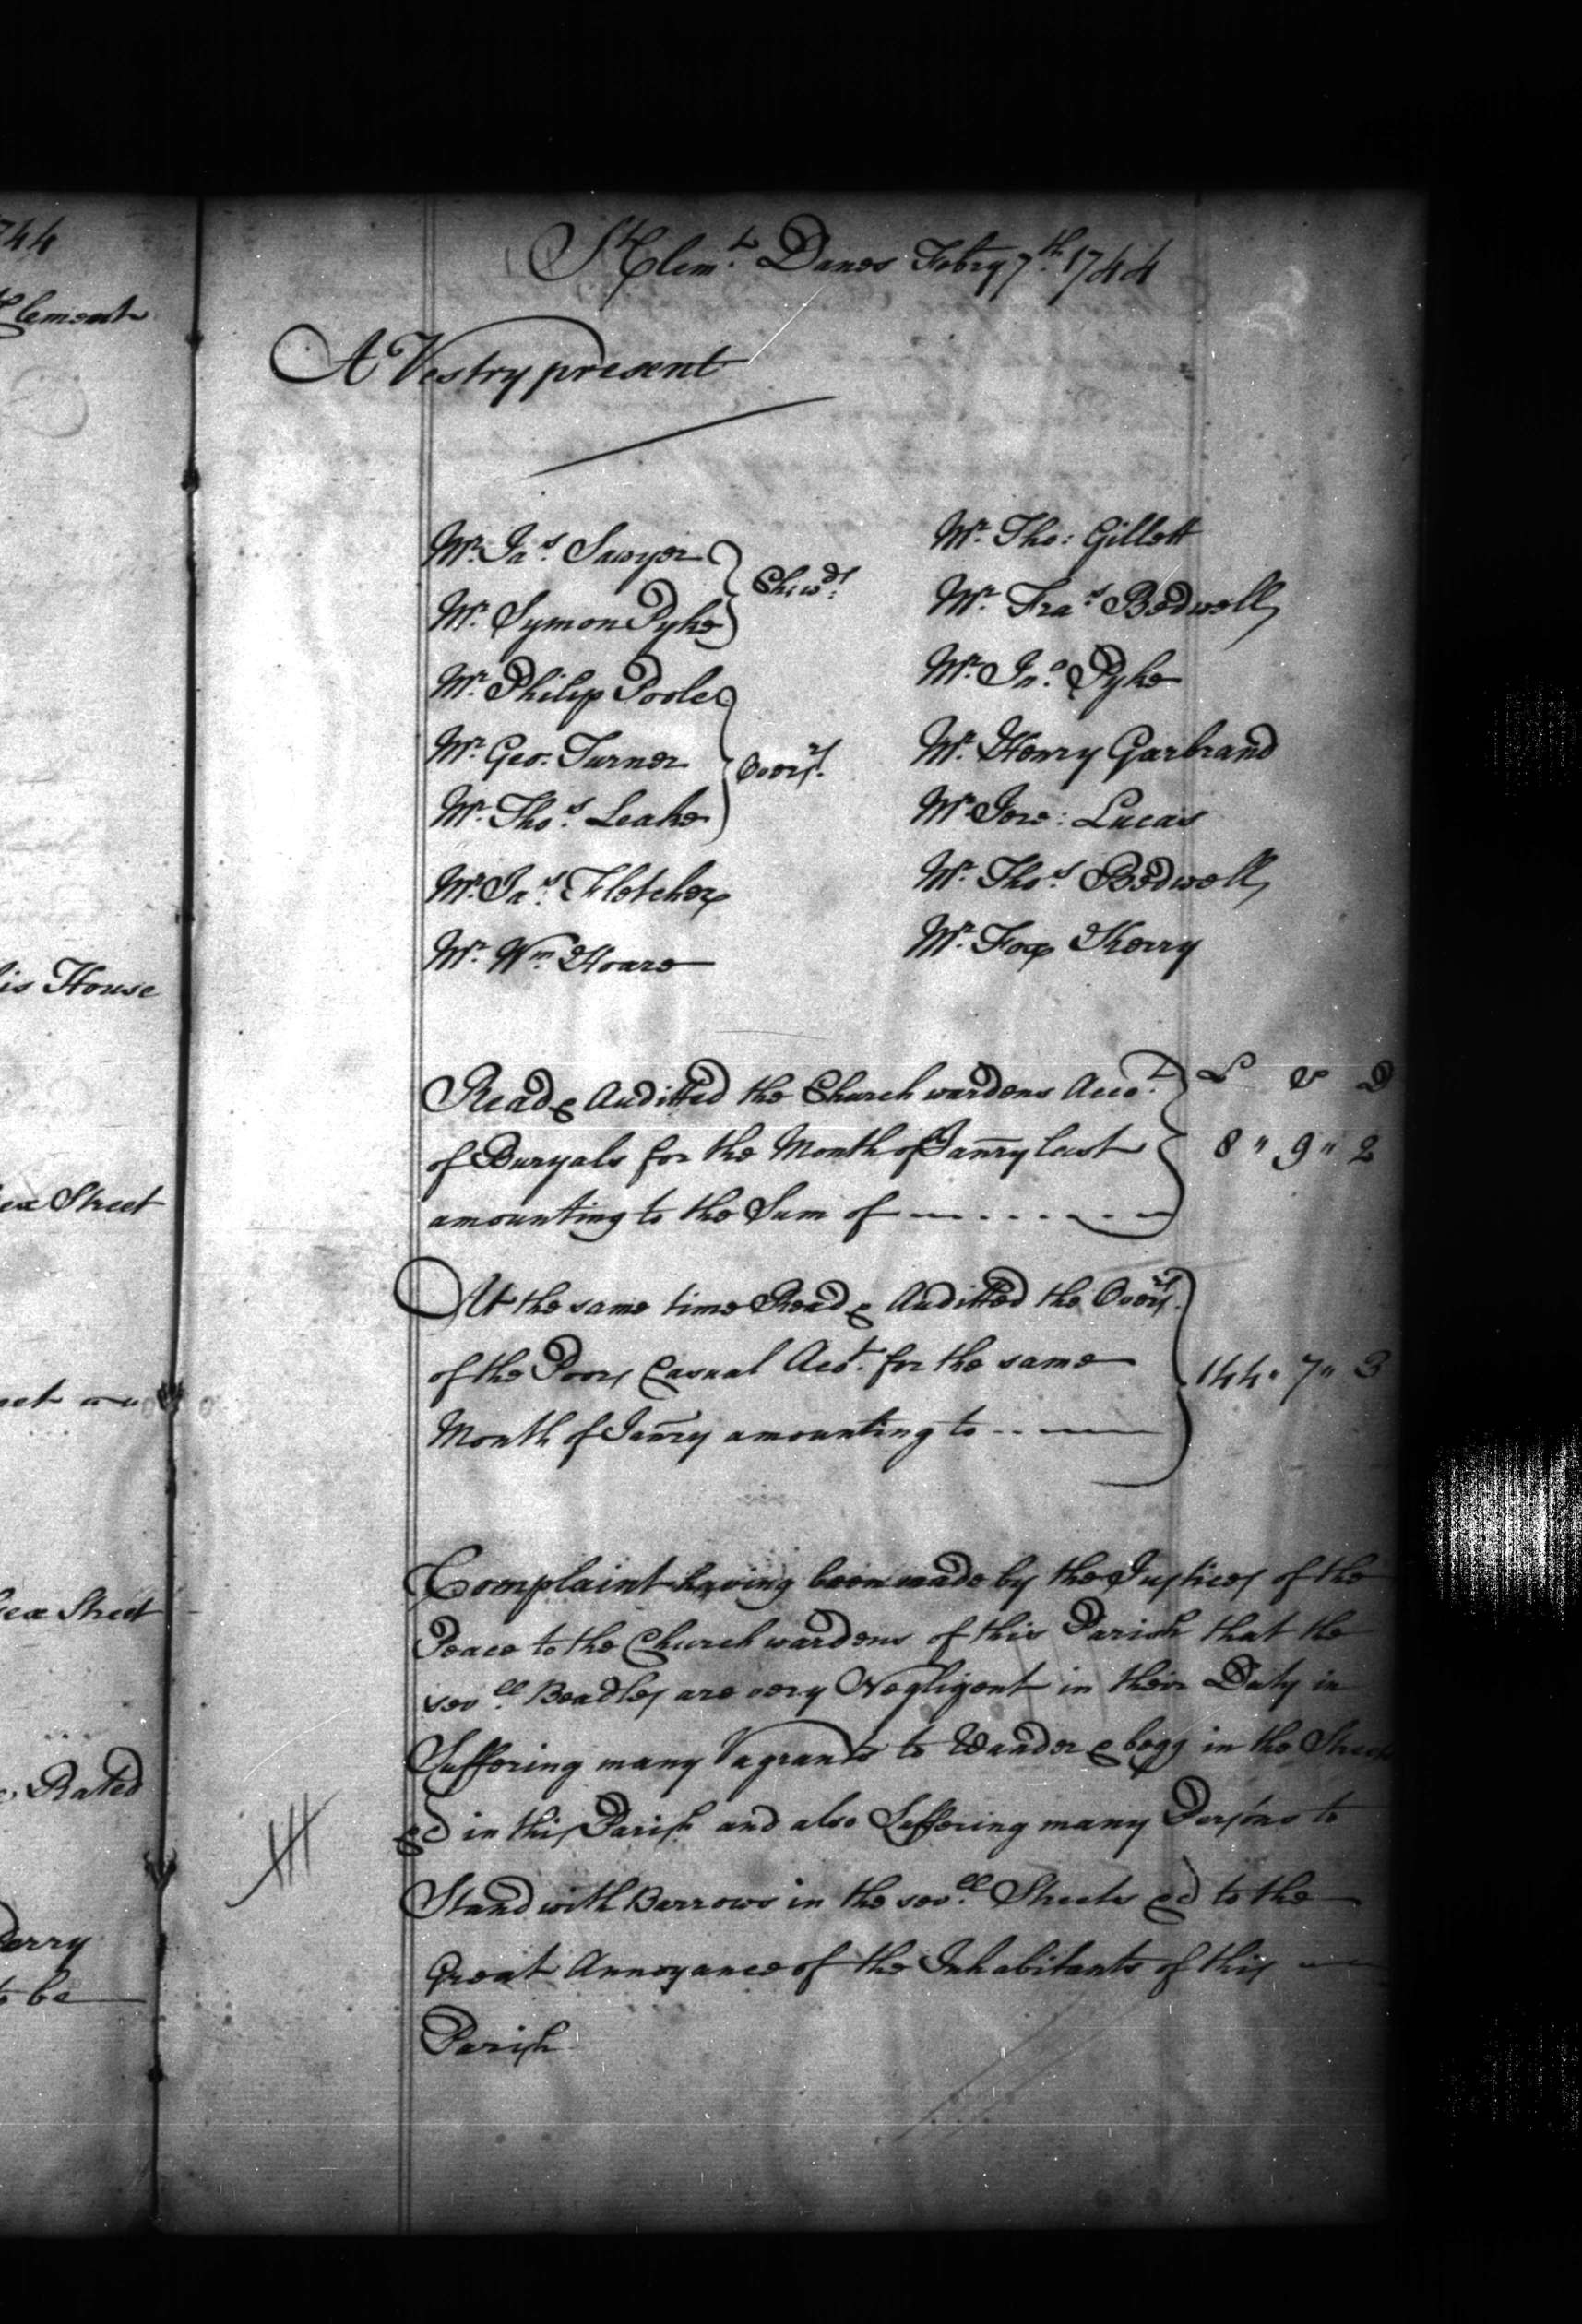 744
Clement
is House
ex Street
et
ex Street
Rated
erry
to be
St Clemt. Danes Febry 7th. 1744
A Vestry present
Mr. Jas. Sawyer
Mr. Symon Pyke
Chwds.
Mr. Philip Poole
Mr. Geo. Turner
Mr. Thos. Leake
Overrs.
Mr. Jas. Fletcher
Mr. Wm. Hoare
Mr. Tho: Gillett
Mr. Fras. Bedwell
Mr. Jno. Pyke
Mr. Henry Garbrand
Mr. Jere: Lucas
Mr. Thos. Bedwell
Mr. Fox Kerry
Read & Auditted the Church wardens Accot. £ S D
of Buryals for the Month of Janry last 8 " 9 " 2
amounting to the Sum of
At the same time Read & Auditted the Overrs.
of the Poors Casual Acct. for the same 144 " 7 " 3
Month of Janry amounting to
Complaint having been made by the Justices of the
Peace to the Church wardens of this Parish that the
sevll. Beadles are very Negligent in their Duty in
Suffering many Vagrants to Wander & begg in the Streets
&c in this Parish and also Suffering many Persons to
Stand with Barrows in the sevll. Streets &c to the
Great Annoyance of the Inhabitants of this
Parish